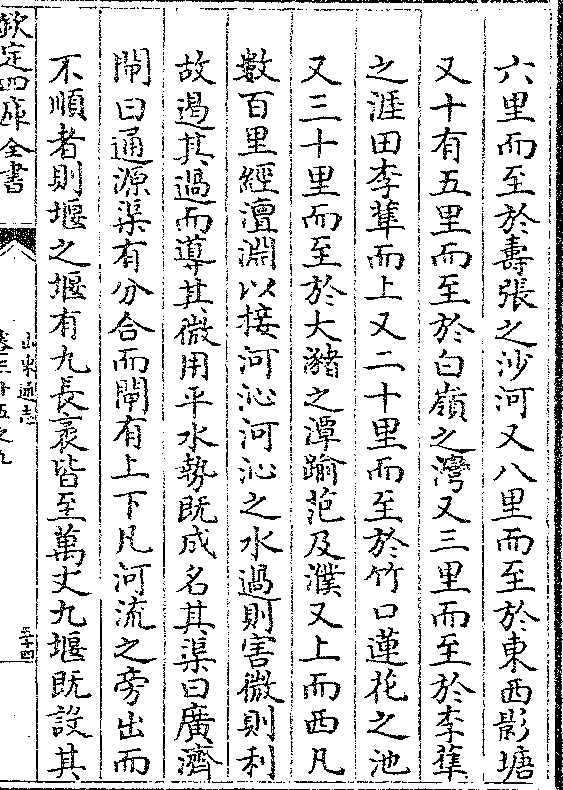 六里而至於壽張之沙河又八里而至於東西影塘
又十有五里而至於白嶺之灣又三里而至於李䧹
之涯田李䧹而上又二十里而至於竹口蓮花之池
又三十里而至於大瀦之潭踰范及濮又上而西凡
數百里經澶淵以接河沁河沁之水過則害微則利
故遏其過而導其微用平水勢既成名其渠曰廣濟
閘曰通源渠有分合而閘有上下凡河流之旁出而
不順者則堰之堰有九長袤皆至萬丈九堰既設其
欽定四庫全書
山東通志
卷三十五之九
五十四